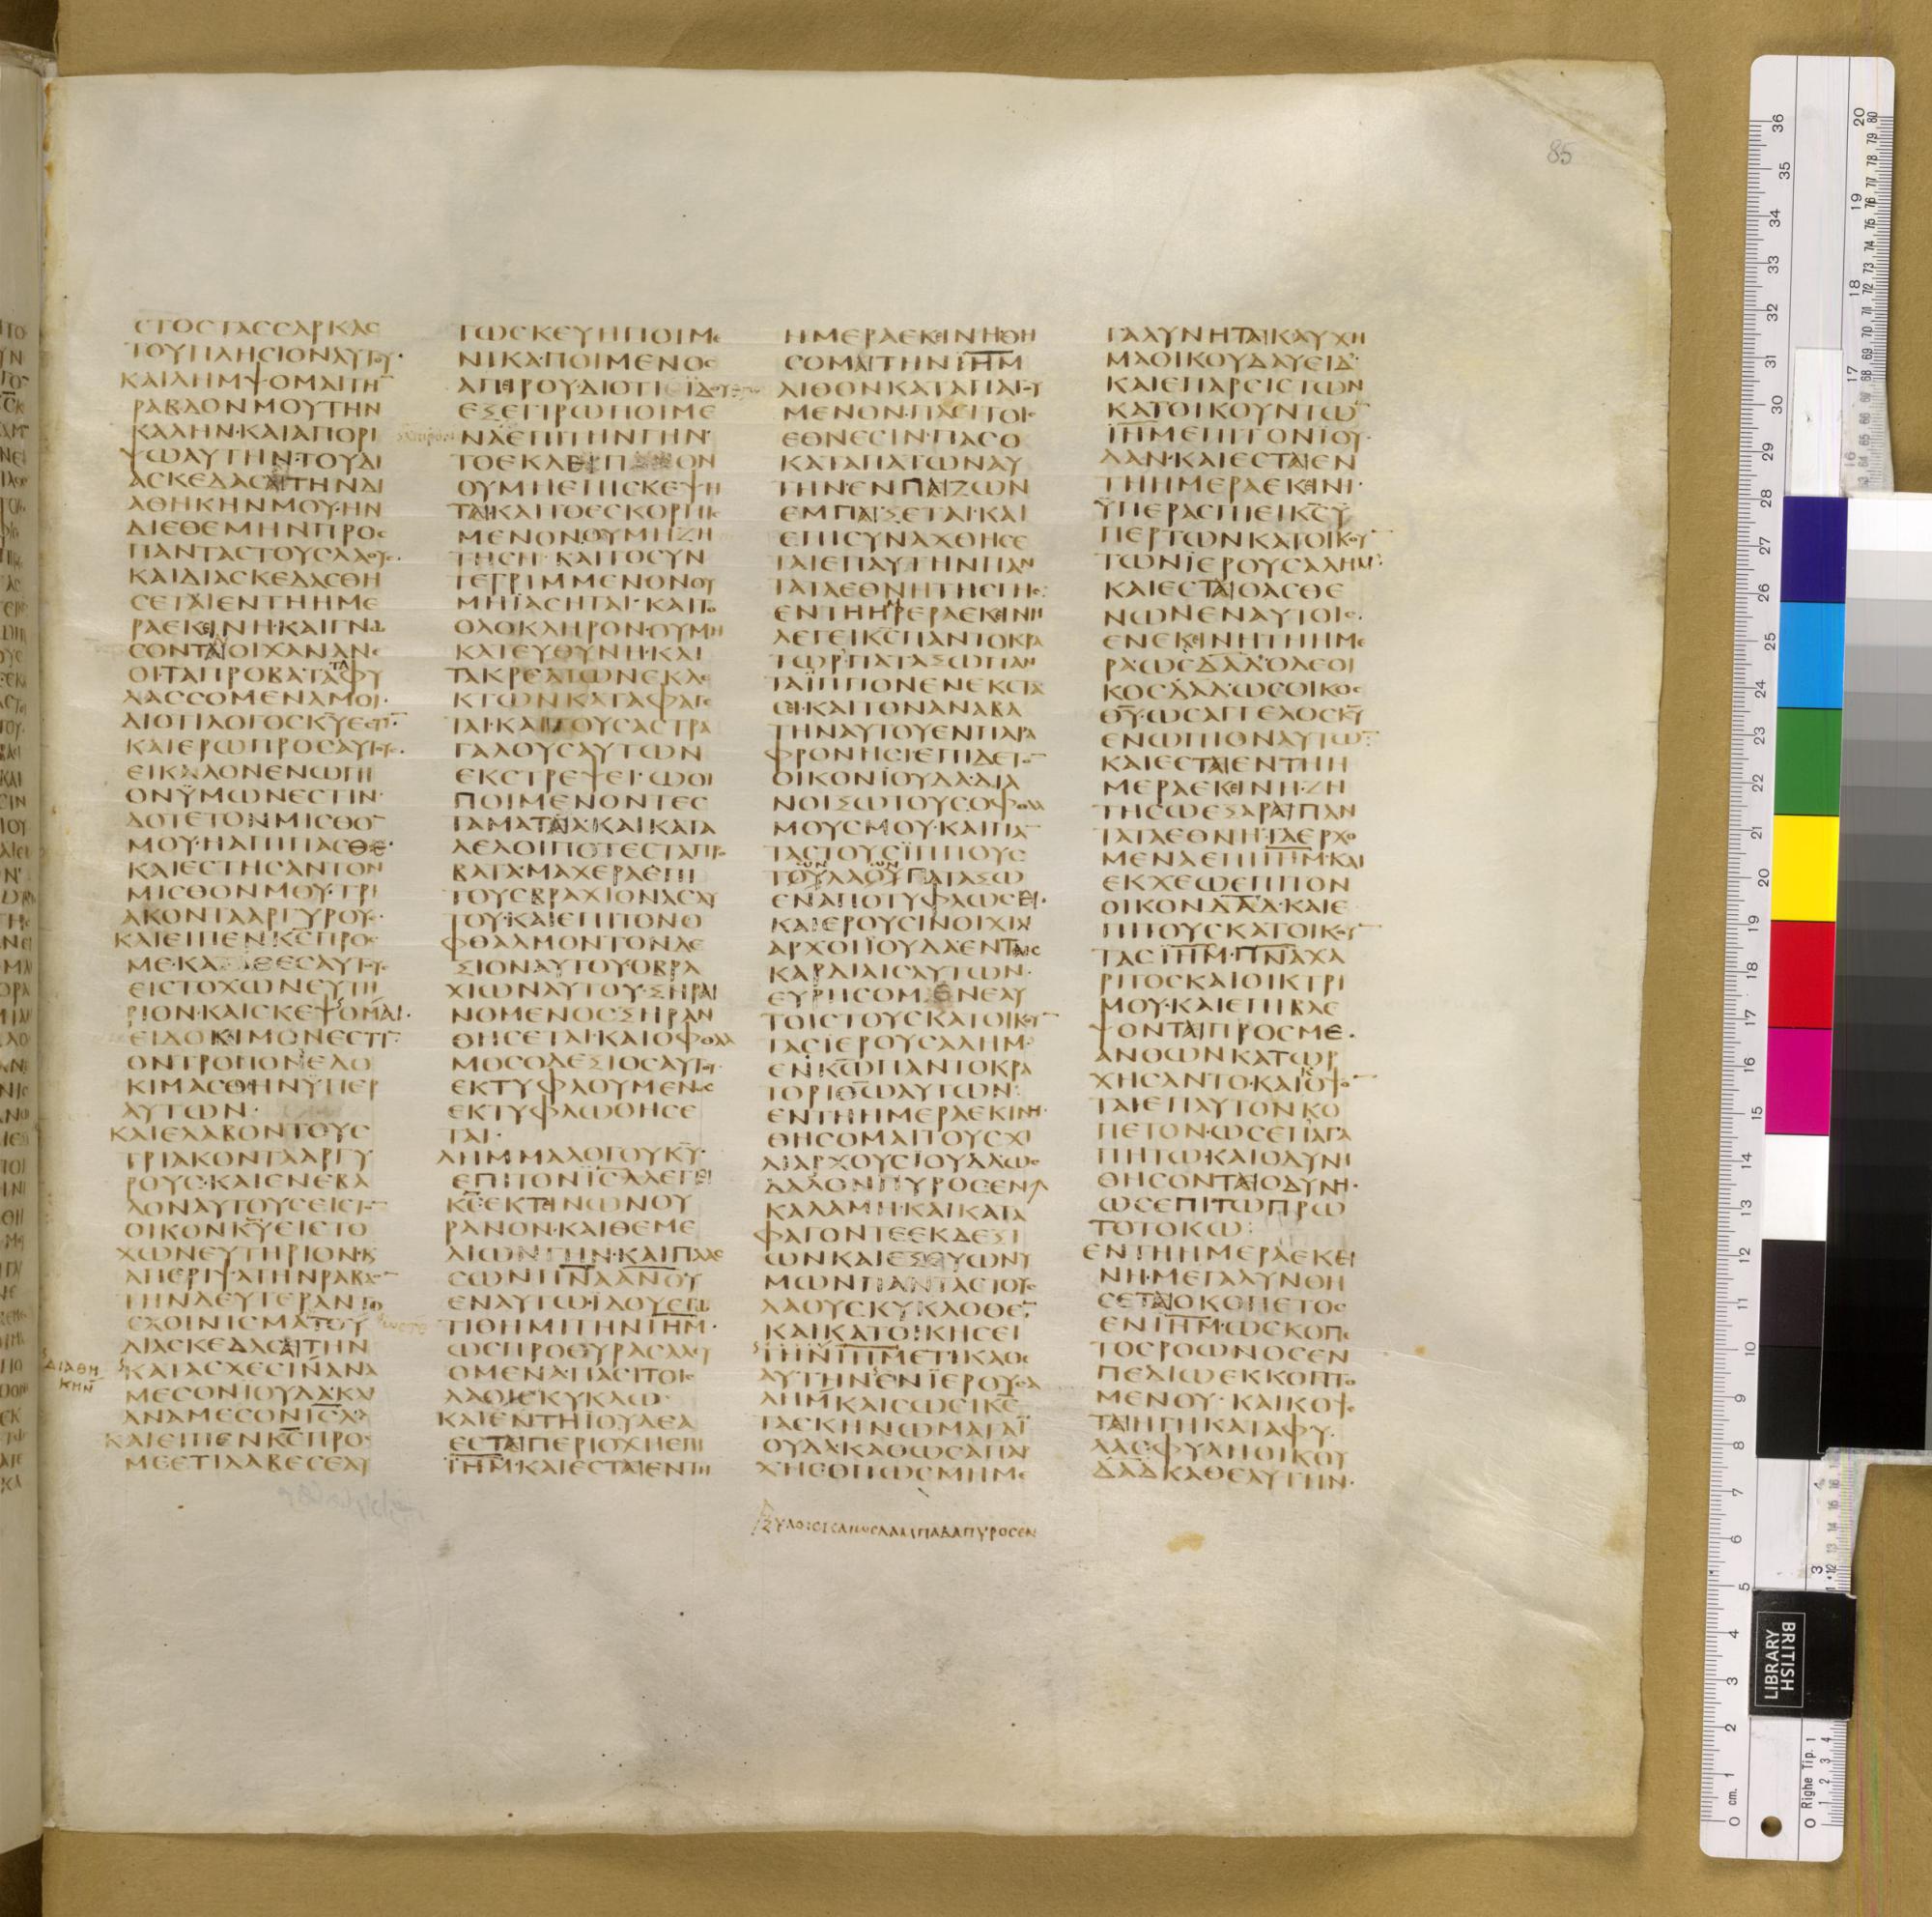 85
ϹΤΟϹΤΑϹϹΑΡΚΑϹ
ΤΟΥΠΛΗϹΙΟΝΑΥΤΟΥ·
ΚΑΙΛΗΜΨΟΜΑΙΤΗ̅
ΡΑΒΔΟΝΜΟΥΤΗΝ
ΚΑΛΗΝ·ΚΑΙΑΠΟΡΙ
ΨΩΑΥΤΗΝ·ΤΟΥΔΙ
ΑϹΚΕΔΑϹΑΙΤΗΝΔΙ
ΑΘΗΚΗΝΜΟΥ·ΗΝ
ΔΙΕΘΕΜΗΝΠΡΟϹ
ΠΑΝΤΑϹΤΟΥϹΛΑΟΥϹ·
ΚΑΙΔΙΑϹΚΕΔΑϹΘΗ
ϹΕΤΑΙΕΝΤΗΗΜΕ
ΡΑΕΚΕΙΝΗ·ΚΑΙΓΝΩ
ϹΟΝΤΑΙΟΙΧΑΝΑΝΕ
ΟΙ·ΤΑΠΡΟΒΑΤΑΤΑΦΥ
ΛΑϹϹΟΜΕΝΑΜΟΙ·
ΔΙΟΤΙΛΟΓΟϹΚΥ̅ΕϹΤΙ̅·
ΚΑΙΕΡΩΠΡΟϹΑΥΤΟΥϹ·
ΕΙΚΑΛΟΝΕΝΩΠΙ
ΟΝΫΜΩΝΕϹΤΙΝ·
ΔΟΤΕΤΟΝΜΙϹΘΟ̅
ΜΟΥ·ΗΑΠΙΠΑϹΘΕ·
ΚΑΙΕϹΤΗϹΑΝΤΟΝ
ΜΙϹΘΟΝΜΟΥ·ΤΡΙ
ΑΚΟΝΤΑΑΡΓΥΡΟΥϹ·
ΚΑΙΕΙΠΕΝΚ̅Ϲ̅ΠΡΟϹ
ΜΕ·ΚΑΘΕϹΑΥΤΟΥϹ
ΕΙϹΤΟΧΩΝΕΥΤΗ
ΡΙΟΝ·ΚΑΙϹΚΕΨΟΜΑΙ·
ΕΙΔΟΚΙΜΟΝΕϹΤΙ̅·
ΟΝΤΡΟΠΟΝΕΔΟ
ΚΙΜΑϹΘΗΝΫΠΕΡ
ΑΥΤΩΝ·
ΚΑΙΕΛΑΒΟΝΤΟΥϹ
ΤΡΙΑΚΟΝΤΑΑΡΓΥ
ΡΟΥϹ·ΚΑΙΕΝΕΒΑ
ΛΟΝΑΥΤΟΥϹΕΙϹΤΟ̅
ΟΙΚΟΝΚΥ̅ΕΙϹΤΟ
ΧΩΝΕΥΤΗΡΙΟΝ·Κ
ΑΠΕΡΙΨΑΤΗΝΡΑΒΔΟ̅
ΤΗΝΔΕΥΤΕΡΑΝΤΟ
ϹΧΟΙΝΙϹΜΑΤΟΥ
ΔΙΑϹΚΕΔΑϹΑΙΤΗΝ
ΔΙΑΘΗ
ΚΗΝ
ΚΑΤΑϹΧΕϹΙΝΑΝΑ
ΜΕϹΟΝΙΟΥΔΑ·ΚΑΙ
ΑΝΑΜΕϹΟΝΙ̅Ϲ̅Λ̅·
ΚΑΙΕΙΠΕΝΚ̅Ϲ̅ΠΡΟϹ
ΜΕΕΤΙΛΑΒΕϹΕΑΥ
ΤΩϹΚΕΥΗΠΟΙΜΕ
ΝΙΚΑ·ΠΟΙΜΕΝΟϹ
ΑΠΕΙΡΟΥ·ΔΙΟΤΙΪΔΟΥ
ΕΞΕΓΕΙΡΩΠΟΙΜΕ
ΝΑΕΠΙΤΗΝΓΗΝ·
ΤΟΕΚΛΕΙΠΟΝ
ΟΥΜΗΕΠΙϹΚΕΨΗ
ΤΑΙ·ΚΑΙΤΟΕϹΚΟΡΠΙϹ
ΜΕΝΟΝΟΥΜΗΖΗ
ΤΗϹΗ·ΚΑΙΤΟϹΥΝ
ΤΕΤΡΙΜΜΕΝΟΝΟΥ
ΜΗΪΑϹΗΤΑΙ·ΚΑΙΤΟ
ΟΛΟΚΛΗΡΟΝ·ΟΥΜΗ
ΚΑΤΕΥΘΥΝΗ·ΚΑΙ
ΤΑΚΡΕΑΤΩΝΕΚΛΕ
ΚΤΩΝΚΑΤΑΦΑΓΕ
ΤΑΙ·ΚΑΙΤΟΥϹΑϹΤΡΑ
ΓΑΛΟΥϹΑΥΤΩΝ
ΕΚϹΤΡΕΨΕΙ·ΩΟΙ
ΠΟΙΜΕΝΟΝΤΕϹ
ΤΑΜΑΤΑΙΑ·ΚΑΙΚΑΤΑ
ΛΕΛΟΙΠΟΤΕϹΤΑΠΡΟ
ΒΑΤΑ·ΜΑΧΕΡΑΕΠΙ
ΤΟΥϹΒΡΑΧΙΟΝΑϹΑΥ
ΤΟΥ·ΚΑΙΕΠΙΤΟΝΟ
ΦΘΑΛΜΟΝΤΟΝΔΕ
ΞΙΟΝΑΥΤΟΥ·ΟΒΡΑ
ΧΙΩΝΑΥΤΟΥ·ΞΗΡΑΙ
ΝΟΜΕΝΟϹΞΗΡΑΝ
ΘΗϹΕΤΑΙ·ΚΑΙΟΦΘΑΛ
ΜΟϹΟΔΕΞΙΟϹΑΥΤΟΥ
ΕΚΤΥΦΛΟΥΜΕΝΟϹ
ΕΚΤΥΦΛΩΘΗϹΕ
ΤΑΙ·
ΛΗΜΜΑΛΟΓΟΥΚΥ̅·
ΕΠΙΤΟΝΙ̅Ϲ̅Λ̅ΛΕΓΕΙ
Κ̅Ϲ̅·ΕΚΤΙΝΩΝΟΥ
ΡΑΝΟΝ·ΚΑΙΘΕΜΕ
ΛΙΩΝΓΗΝ·ΚΑΙΠΛΑϹ
ϹΩΝΠ̅Ν̅Α̅ΑΝ̅Ο̅Υ̅
ΕΝΑΥΤΩ·ΪΔΟΥΕΓΩ
ΤΙΘΗΜΙΤΗΝΙ̅Η̅Μ̅·
ΩϹΠΡΟΘΥΡΑϹΑΛΕΥ
ΟΜΕΝΑ·ΠΑϹΙΤΟΙϹ
ΛΑΟΙϹΚΥΚΛΩ·
ΚΑΙΕΝΤΗΪΟΥΔΕΑ
ΕϹΤΑΙΠΕΡΙΟΧΗΕΠΙ
Ϊ̅Η̅Μ̅·ΚΑΙΕϹΤΑΙΕΝΤΗ
ΗΜΕΡΑΕΚΕΙΝΗΘΗ
ϹΟΜΑΙΤΗΝΪ̅Η̅Μ̅
ΛΙΘΟΝΚΑΤΑΠΑΤΟΥ
ΜΕΝΟΝ·ΠΑϹΙΤΟΙϹ
ΕΘΝΕϹΙΝ·ΠΑϹΟ
ΚΑΤΑΠΑΤΩΝΑΥ
ΤΗΝ·ΕΝΠΑΙΖΩΝ
ΕΜΠΑΙΞΕΤΑΙ·ΚΑΙ
ΕΠΙϹΥΝΑΧΘΗϹΕ
ΤΑΙΕΠΑΥΤΗΝΠΑΝ
ΤΑΤΑΕΘΝΗΤΗϹΓΗϹ·
ΕΝΤΗΗΜΕΡΑΕΚΕΙΝΗ
ΛΕΓΕΙΚ̅Ϲ̅ΠΑΝΤΟΚΡΑ
ΤΩΡ·ΠΑΤΑΞΩΠΑΝ
ΤΑΪΠΠΟΝΕΝΕΚϹΤΑ
ϹΕΙ·ΚΑΙΤΟΝΑΝΑΒΑ
ΤΗΝΑΥΤΟΥΕΝΠΑΡΑ
ΦΡΟΝΗϹΙ·ΕΠΙΔΕΤΟ̅
ΟΙΚΟΝΪΟΥΔΑ·ΔΙΑ
ΝΟΙΞΩΤΟΥϹΟΦΘΑΛ
ΜΟΥϹΜΟΥ·ΚΑΙΠΑ̅
ΤΑϹΤΟΥϹΪΠΠΟΥϹ
ΤΩΝΛΑΩΝΠΑΤΑΞΩ
ΕΝΑΠΟΤΥΦΛΩϹΕΙ·
ΚΑΙΕΡΟΥϹΙΝΟΙΧΙΛΙ
ΑΡΧΟΙΪΟΥΔΑΕΝΤΑΙϹ
ΚΑΡΔΙΑΙϹΑΥΤΩΝ·
ΕΥΡΗϹΟΜΕΝΕΑΥ
ΤΟΙϹΤΟΥϹΚΑΤΟΙΚΟΥ̅
ΤΑϹΙΕΡΟΥϹΑΛΗΜ·
ΕΝΚ̅Ω̅ΠΑΝΤΟΚΡΑ
ΤΟΡΙΘ̅Ω̅ΑΥΤΩΝ·
ΕΝΤΗΗΜΕΡΑΕΚΙΝΗ·
ΘΗϹΟΜΑΙΤΟΥϹΧΙ
ΛΙΑΡΧΟΥϹΙΟΥΔΑΩϹ
ΔΑΛΟΝΠΥΡΟϹΕΝ
ΚΑΛΑΜΗ·ΚΑΙΚΑΤΑ
ΦΑΓΟΝΤΕΕΚΔΕΞΙ
ΩΝΚΑΙΕΞΕΥΩΝΥ
ΜΩΝΠΑΝΤΑϹΤΟΥϹ
ΛΑΟΥϹΚΥΚΛΟΘΕ̅·
ΚΑΙΚΑΤΟΙΚΗϹΕΙ
ΓΗΝΪ̅Η̅Μ̅ΕΤΙΚΑΘ
ΑΥΤΗΝΕΝΪΕΡΟΥϹΑ
ΛΗΜΚΑΙϹΩϹΕΙΚ̅Ϲ̅
ΤΑϹΚΗΝΩΜΑΤΑΪ
ΟΥΔΑ·ΚΑΘΩϹΑΠΑΡ
ΧΗϹΟΠΩϹΜΗΜΕ
ΞΥΛΟΙϹΚΑΙΩϹΛΑΜΠΑΔΑΠΥΡΟϹΕΝ
ΓΑΛΥΝΗΤΑΙΚΑΥΧΗ
ΜΑΟΙΚΟΥΔΑΥΕΙΔ·
ΚΑΙΕΠΑΡϹΙϹΤΩΝ
ΚΑΤΟΙΚΟΥΝΤΩ̅
Ϊ̅Η̅Μ̅ΕΠΙΤΟΝΙΟΥ
ΔΑΝ·ΚΑΙΕϹΤΑΙΕΝ
ΤΗΗΜΕΡΑΕΚΕΙΝΗ·
ΫΠΕΡΑϹΠΙΕΙΚ̅Ϲ̅Ϋ
ΠΕΡΤΩΝΚΑΤΟΙΚΟΥ̅
ΤΩΝΪΕΡΟΥϹΑΛΗΜ·
ΚΑΙΕϹΤΑΙΟΑϹΘΕ
ΝΩΝΕΝΑΥΤΟΙϹ·
ΕΝΕΚΕΙΝΗΤΗΗΜΕ
ΡΑ·ΩϹΔ̅Α̅Δ̅·ΟΔΕΟΙ
ΚΟϹΔΑΔ·ΩϹΟΙΚΟϹ
Θ̅Υ̅·ΩϹΑΓΓΕΛΟϹΚ̅Υ̅
ΕΝΩΠΙΟΝΑΥΤΩ̅·
ΚΑΙΕϹΤΑΙΕΝΤΗΗ
ΜΕΡΑΕΚΕΙΝΗ·ΖΗ
ΤΗϹΩΕΞΑΡΑΙΠΑΝ
ΤΑΤΑΕΘΝΗ·ΤΑΕΡΧΟ
ΜΕΝΑΕΠΙΪ̅Η̅Μ̅·ΚΑΙ
ΕΚΧΕΩΕΠΙΤΟΝ
ΟΙΚΟΝΔ̅Α̅Δ̅·ΚΑΙΕ
ΠΙΤΟΥϹΚΑΤΟΙΚΟΥ̅
ΤΑϹΪ̅Η̅Μ̅·Π̅Ν̅Α̅ΧΑ
ΡΙΤΟϹΚΑΙΟΙΚΤΙΡ
ΜΟΥ·ΚΑΙΕΠΙΒΛΕ
ΨΟΝΤΑΙΠΡΟϹΜΕ·
ΑΝΘΩΝΚΑΤΩΡ
ΧΗϹΑΝΤΟ·ΚΑΙΟΨΟ̅
ΤΑΙΕΠΑΥΤΟΝΚΟ
ΠΕΤΟΝ·ΩϹΕΠΑΓΑ
ΠΗΤΩ·ΚΑΙΟΔΥΝΗ
ΘΗϹΟΝΤΑΙΟΔΥΝΗ·
ΩϹΕΠΙΤΩΠΡΩ
ΤΟΤΟΚΩ:
ΕΝΤΗΗΜΕΡΑΕΚΕΙ
ΝΗ·ΜΕΓΑΛΥΝΘΗ
ϹΕΤΑΙΟΚΟΠΕΤΟϹ
ΕΝΪ̅Η̅Μ̅·ΩϹΚΟΠΕ
ΤΟϹΡΟΩΝΟϹΕΝ
ΠΕΔΙΩΕΚΚΟΠΤΟ
ΜΕΝΟΥ·ΚΑΙΚΟΨΕ
ΤΑΙΗΓΗΚΑΤΑΦΥ
ΛΑϹΦΥΛΗΟΙΚΟΥ
Δ̅Α̅Δ̅ΚΑΘΕΑΥΤΗΝ·
BRITISH
LIBRARY
0 cm. 1 2 3 4 5 6 7 8 9 10 11 12 13 14 15 16 17 18 19 20 21 22 23 24 25 26 27 28 29 30 31 32 33 34 35 36
0 Righe Tip. 1